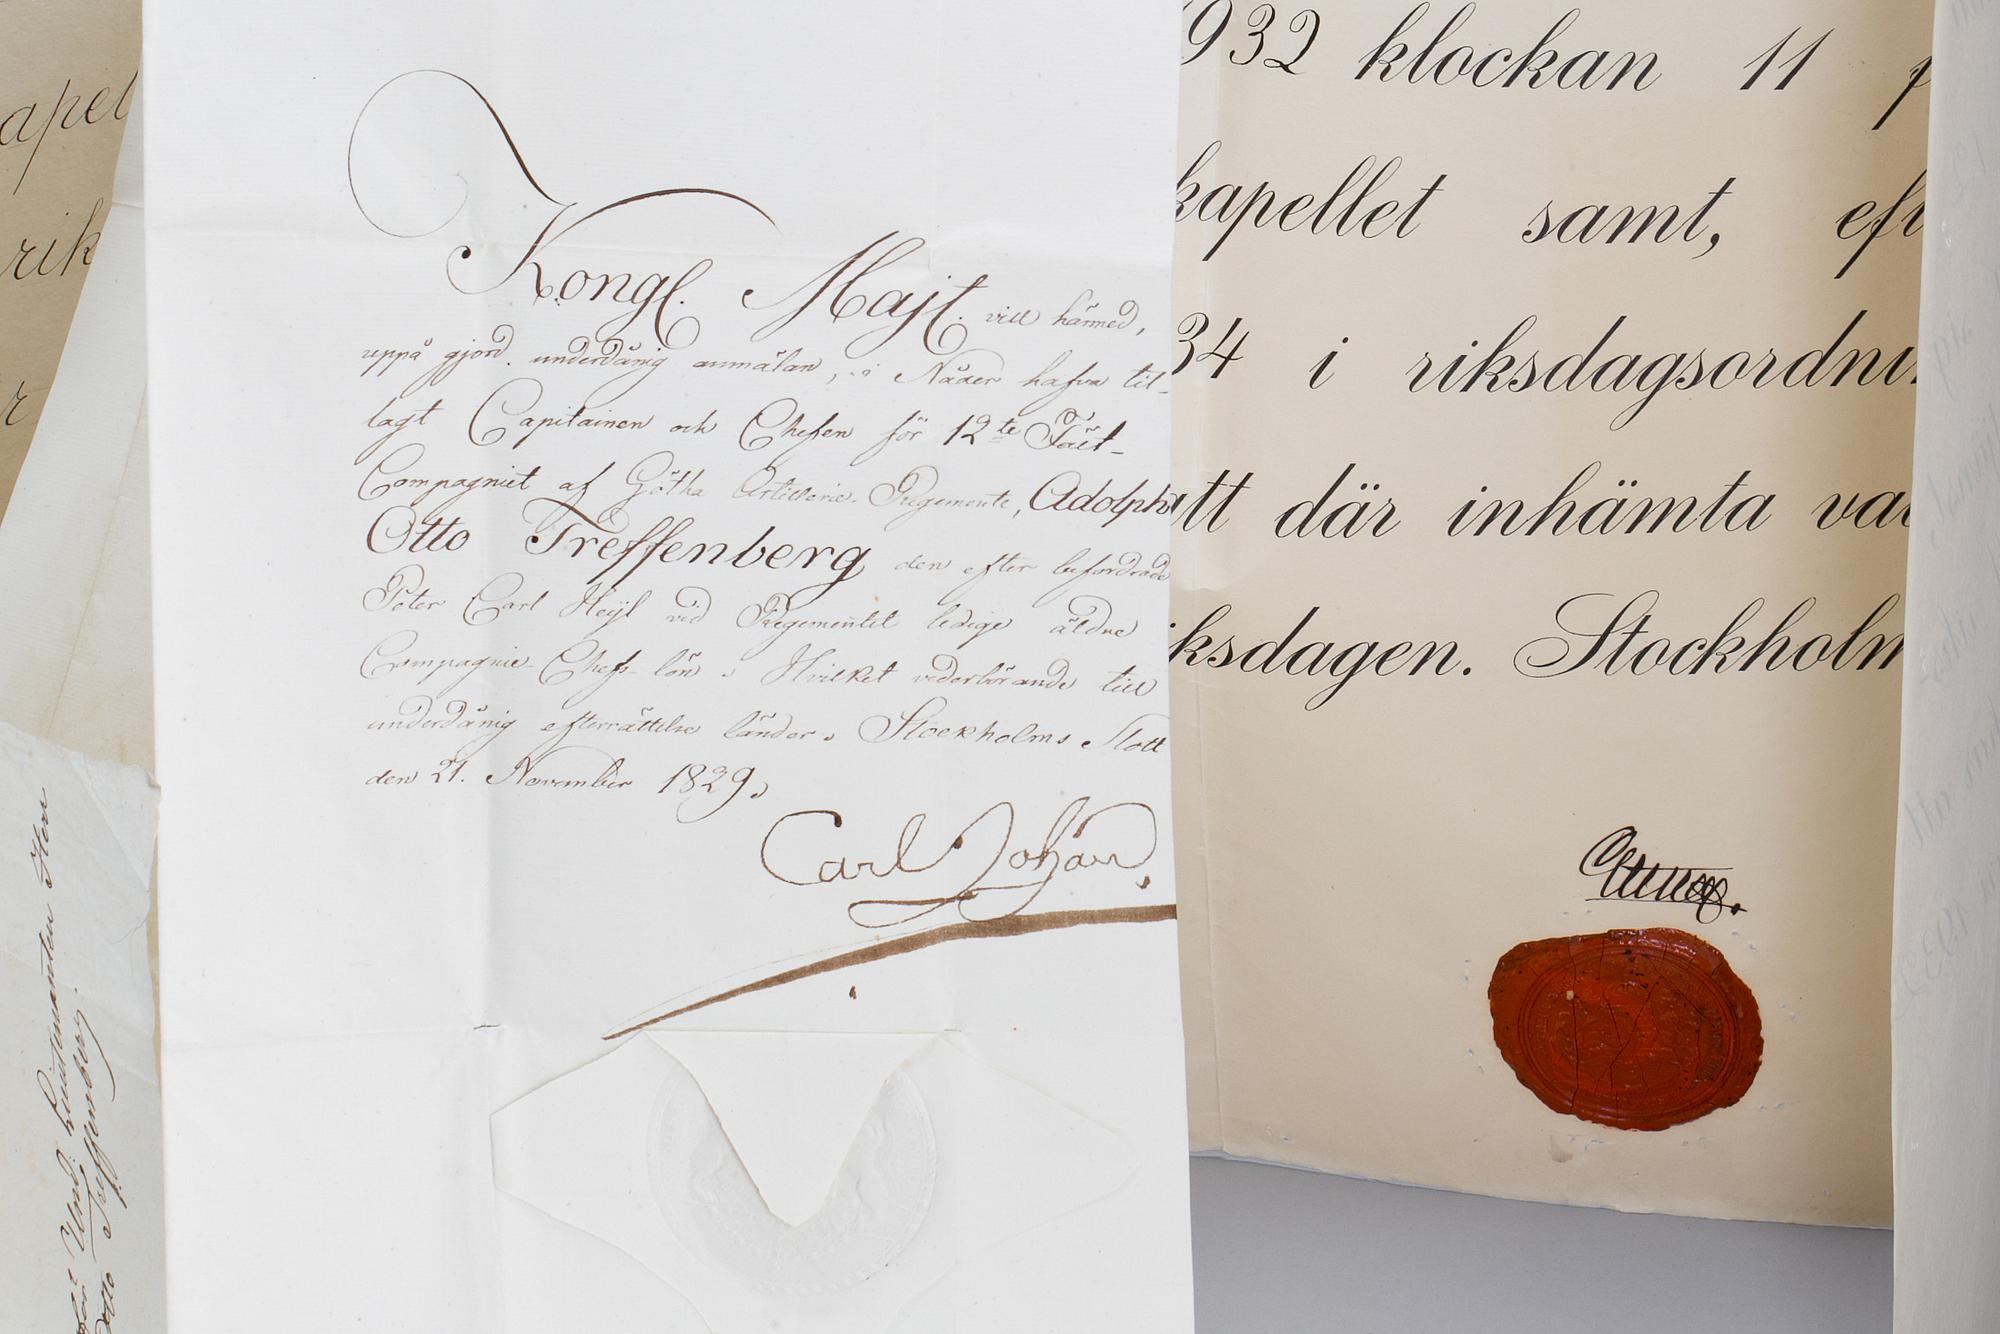 apel
rik
r
Kongl. Majt. vill härmed,
uppå gjord underdånig anmälan, i Nåder hafva til-
lagt Capitainen och Chefen för 12te Fält-
Compagniet af Götha Artillerie-Regemente, Adolph
Otto Treffenberg den efter befordrade
Peter Carl Heijl vid Regementet ledige äldre
Compagnie-Chefs-lön; Hvilket vederbörande till
underdånig efterrättelse länder. Stockholms Slott
den 21. November 1829.
Carl Johan
1932 klockan 11 f
kapellet samt, eft
34 i riksdagsordni
att där inhämta va
ksdagen. Stockholm
Underlieutnanten Herr
Otto Treffenberg